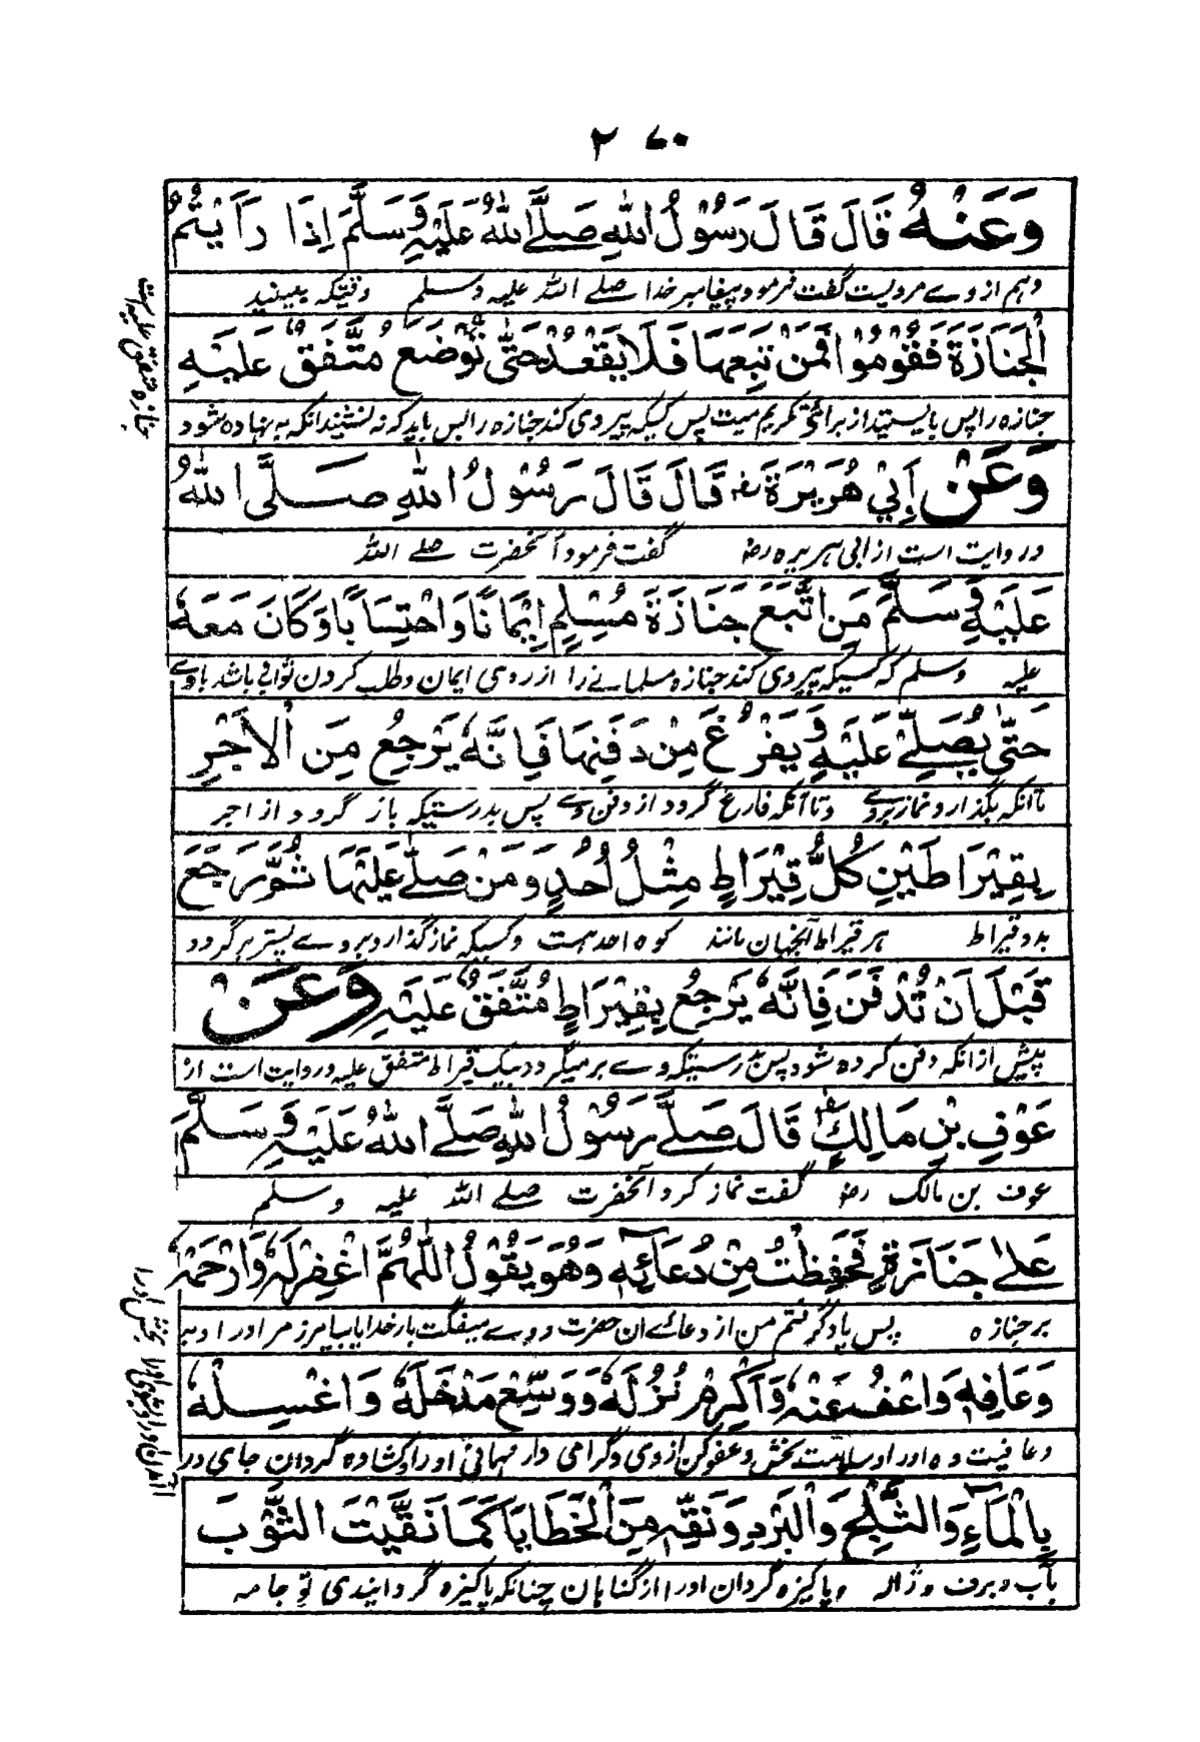 ۲۷۰
وَعَنْهُ قَالَ قَالَ رَسُوْلُ اللهِ صَلَّے اللهُ عَلَيْهِ وَسَلَّمَ اِذَا رَاَيْتُمُ
وہم ازوے مرویست گفت فرمود پیغامبر خدا صلے اللہ علیہ وسلم وقتیکہ ببینید
الْجَنَازَةَ فَقُوْمُوْا فَمَنْ تَبِعَهَا فَلَا يَقْعُدْ حَتّٰى تُوْضَعَ مُتَّفَقٌ عَلَيْهِ
جنازہ را پس بایستید از برائے تکریم میت پس کسیکہ پیروی کند جنازہ را پس باید کہ نہ نشیند تا آنکہ بہ نہادہ شود
وَعَنْ اَبِيْ هُرَيْرَةَ رض قَالَ قَالَ رَسُوْلُ اللهِ صَلَّى اللهُ
و روایت است از ابی ہریرہ رض گفت فرمود آنحضرت صلے اللہ
عَلَيْهِ وَسَلَّمَ مَنِ اتَّبَعَ جَنَازَةَ مُسْلِمٍ اِيْمَانًا وَاحْتِسَابًا وَكَانَ مَعَهٗ
علیہ وسلم کہ کسیکہ پیروی کند جنازہ مسلمانے را از روی ایمان وطلب کردن ثواب و باشد باوے
حَتّٰى يُصَلّٰے عَلَيْهِ وَيَفْرُغَ مِنْ دَفْنِهَا فَاِنَّهٗ يَرْجِعُ مِنَ الْاَجْرِ
تاآنکہ بگذارد نماز بروے وتاآنکہ فارغ گردد از دفن وے پس بدرستیکہ باز گردد از اجر
بِقِيْرَاطَيْنِ كُلُّ قِيْرَاطٍ مِثْلُ اُحُدٍ وَمَنْ صَلّٰے عَلَيْهَا ثُمَّ رَجَعَ
بدوقیراط ہر قیراط آنجہان مانند کوہ احد ست وکسیکہ نماز گذارد بروے پستر برگردد
قَبْلَ اَنْ تُدْفَنَ فَاِنَّهٗ يَرْجِعُ بِقِيْرَاطٍ مُتَّفَقٌ عَلَيْهِ وَعَنْ
پیش ازانکہ دفن کردہ شود پس بدرستیکہ وے برمیگردد بیک قیراط متفق علیہ وروایت است از
عَوْفِ بْنِ مَالِكٍ رض قَالَ صَلّٰے رَسُوْلُ اللهِ صَلَّے اللهُ عَلَيْهِ وَسَلَّمَ
عوف بن مالک رض گفت نماز کرد آنحضرت صلے اللہ علیہ وسلم
عَلٰے جَنَازَةٍ فَحَفِظْتُ مِنْ دُعَائِهٖ وَهُوَ يَقُوْلُ اللّٰهُمَّ اغْفِرْ لَهٗ وَارْحَمْهُ
بر جنازہ پس یاد گرفتم من از دعائے ان حضرت و وے میگفت بار خدایا بیامرز مر اورا و
وَعَافِهٖ وَاعْفُ عَنْهُ وَاَكْرِمْ نُزُلَهٗ وَوَسِّعْ مَدْخَلَهٗ وَاغْسِلْهُ
وعافیت دہ اورا وسلامت بخش وعفو کن ازوی وگرامی دار مہمانی اورا وکشادہ گردان جای در
بِالْمَاءِ وَالثَّلْجِ وَالْبَرَدِ وَنَقِّهٖ مِنَ الْخَطَايَا كَمَا نَقَّيْتَ الثَّوْبَ
بآب وبرف وژالہ وپاکیزہ گردان اورا از گناہان چنانکہ پاکیزہ گردانیدی تو جامہ